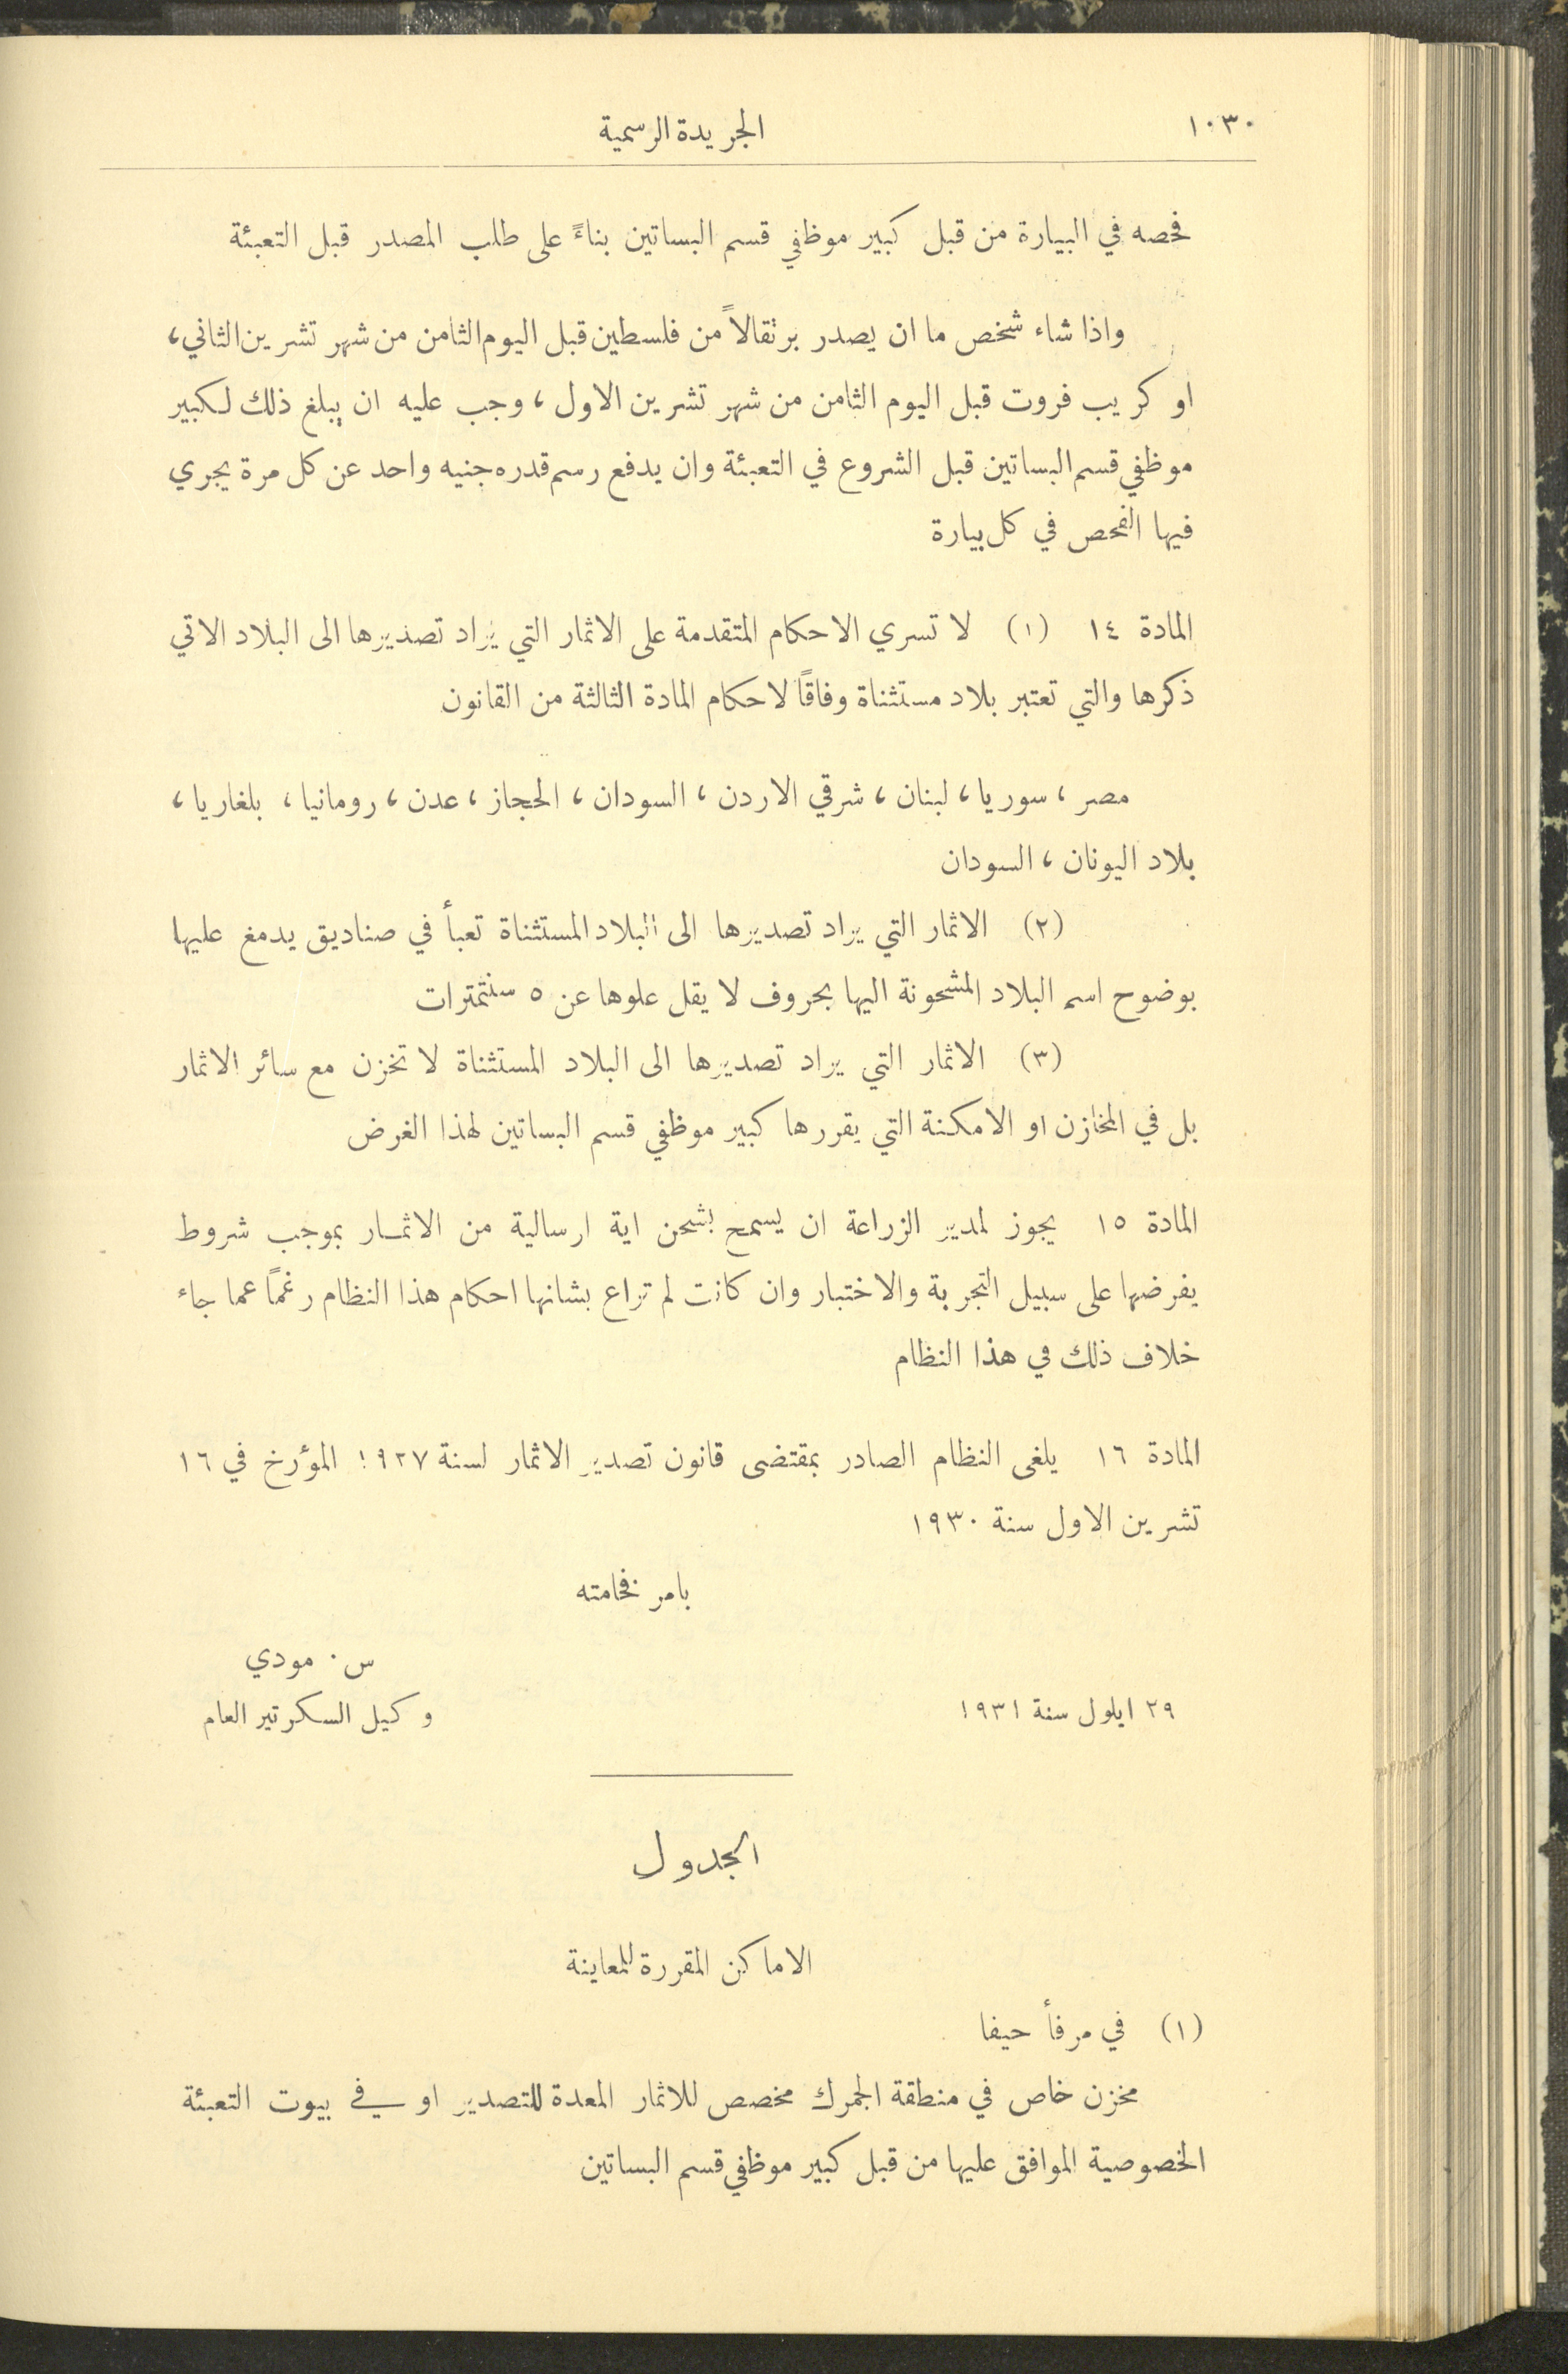 ١٠٣٠
الجريدة الرسمية
فحصه في البيارة من قبل كبير موظفي قسم البساتين بناءً على طلب المصدر قبل التعبئة
واذا شاء شخص ما ان يصدر برتقالاً من فلسطين قبل اليوم الثامن من شهر تشرين الثاني،
او كريب فروت قبل اليوم الثامن من شهر تشرين الاول، وجب عليه ان يبلغ ذلك لكبير
موظفي قسم البساتين قبل الشروع في التعبئة وان يدفع رسم قدره جنيه واحد عن كل مرة يجري
فيها الفحص في كل بيارة
المادة ١٤ (١) لا تسري الاحكام المتقدمة على الاثمار التي يراد تصديرها الى البلاد الاتي
ذكرها والتي تعتبر بلاد مستثناة وفاقاً لاحكام المادة الثالثة من القانون
مصر، سوريا، لبنان، شرقي الاردن، السودان، الحجاز، عدن، رومانيا، بلغاريا،
بلاد اليونان، السودان
(٢) الاثمار التي يراد تصديرها الى البلاد المستثناة تعبأ في صناديق يدمغ عليها
بوضوح اسم البلاد المشحونة اليها بحروف لا يقل علوها عن ٥ سنتمترات
(٣) الاثمار التي يراد تصديرها الى البلاد المستثناة لا تخزن مع سائر الاثمار
بل في المخازن او الامكنة التي يقررها كبير موظفي قسم البساتين لهذا الغرض
المادة ١٥ يجوز لمدير الزراعة ان يسمح بشحن اية ارسالية من الاثمـار بموجب شروط
يفرضها على سبيل التجربة والاختبار وان كانت لم تراع بشانها احكام هذا النظام رغماً عما جاء
خلاف ذلك في هذا النظام
المادة ١٦ يلغى النظام الصادر بمقتضى قانون تصدير الاثمار لسنة ١٩٢٧ المؤرخ في ١٦
تشرين الاول سنة ١٩٣٠
بامر فخامته
س. مودي
٢٩ ايلول سنة ١٩٣١
وكيل السكرتير العام
الجدول
الاماكن المقررة للمعاينة
(١) في مرفأ حيفا
مخزن خاص في منطقة الجمرك مخصص للاثمار المعدة للتصدير او في بيوت التعبئة
الخصوصية الموافق عليها من قبل كبير موظفي قسم البساتين